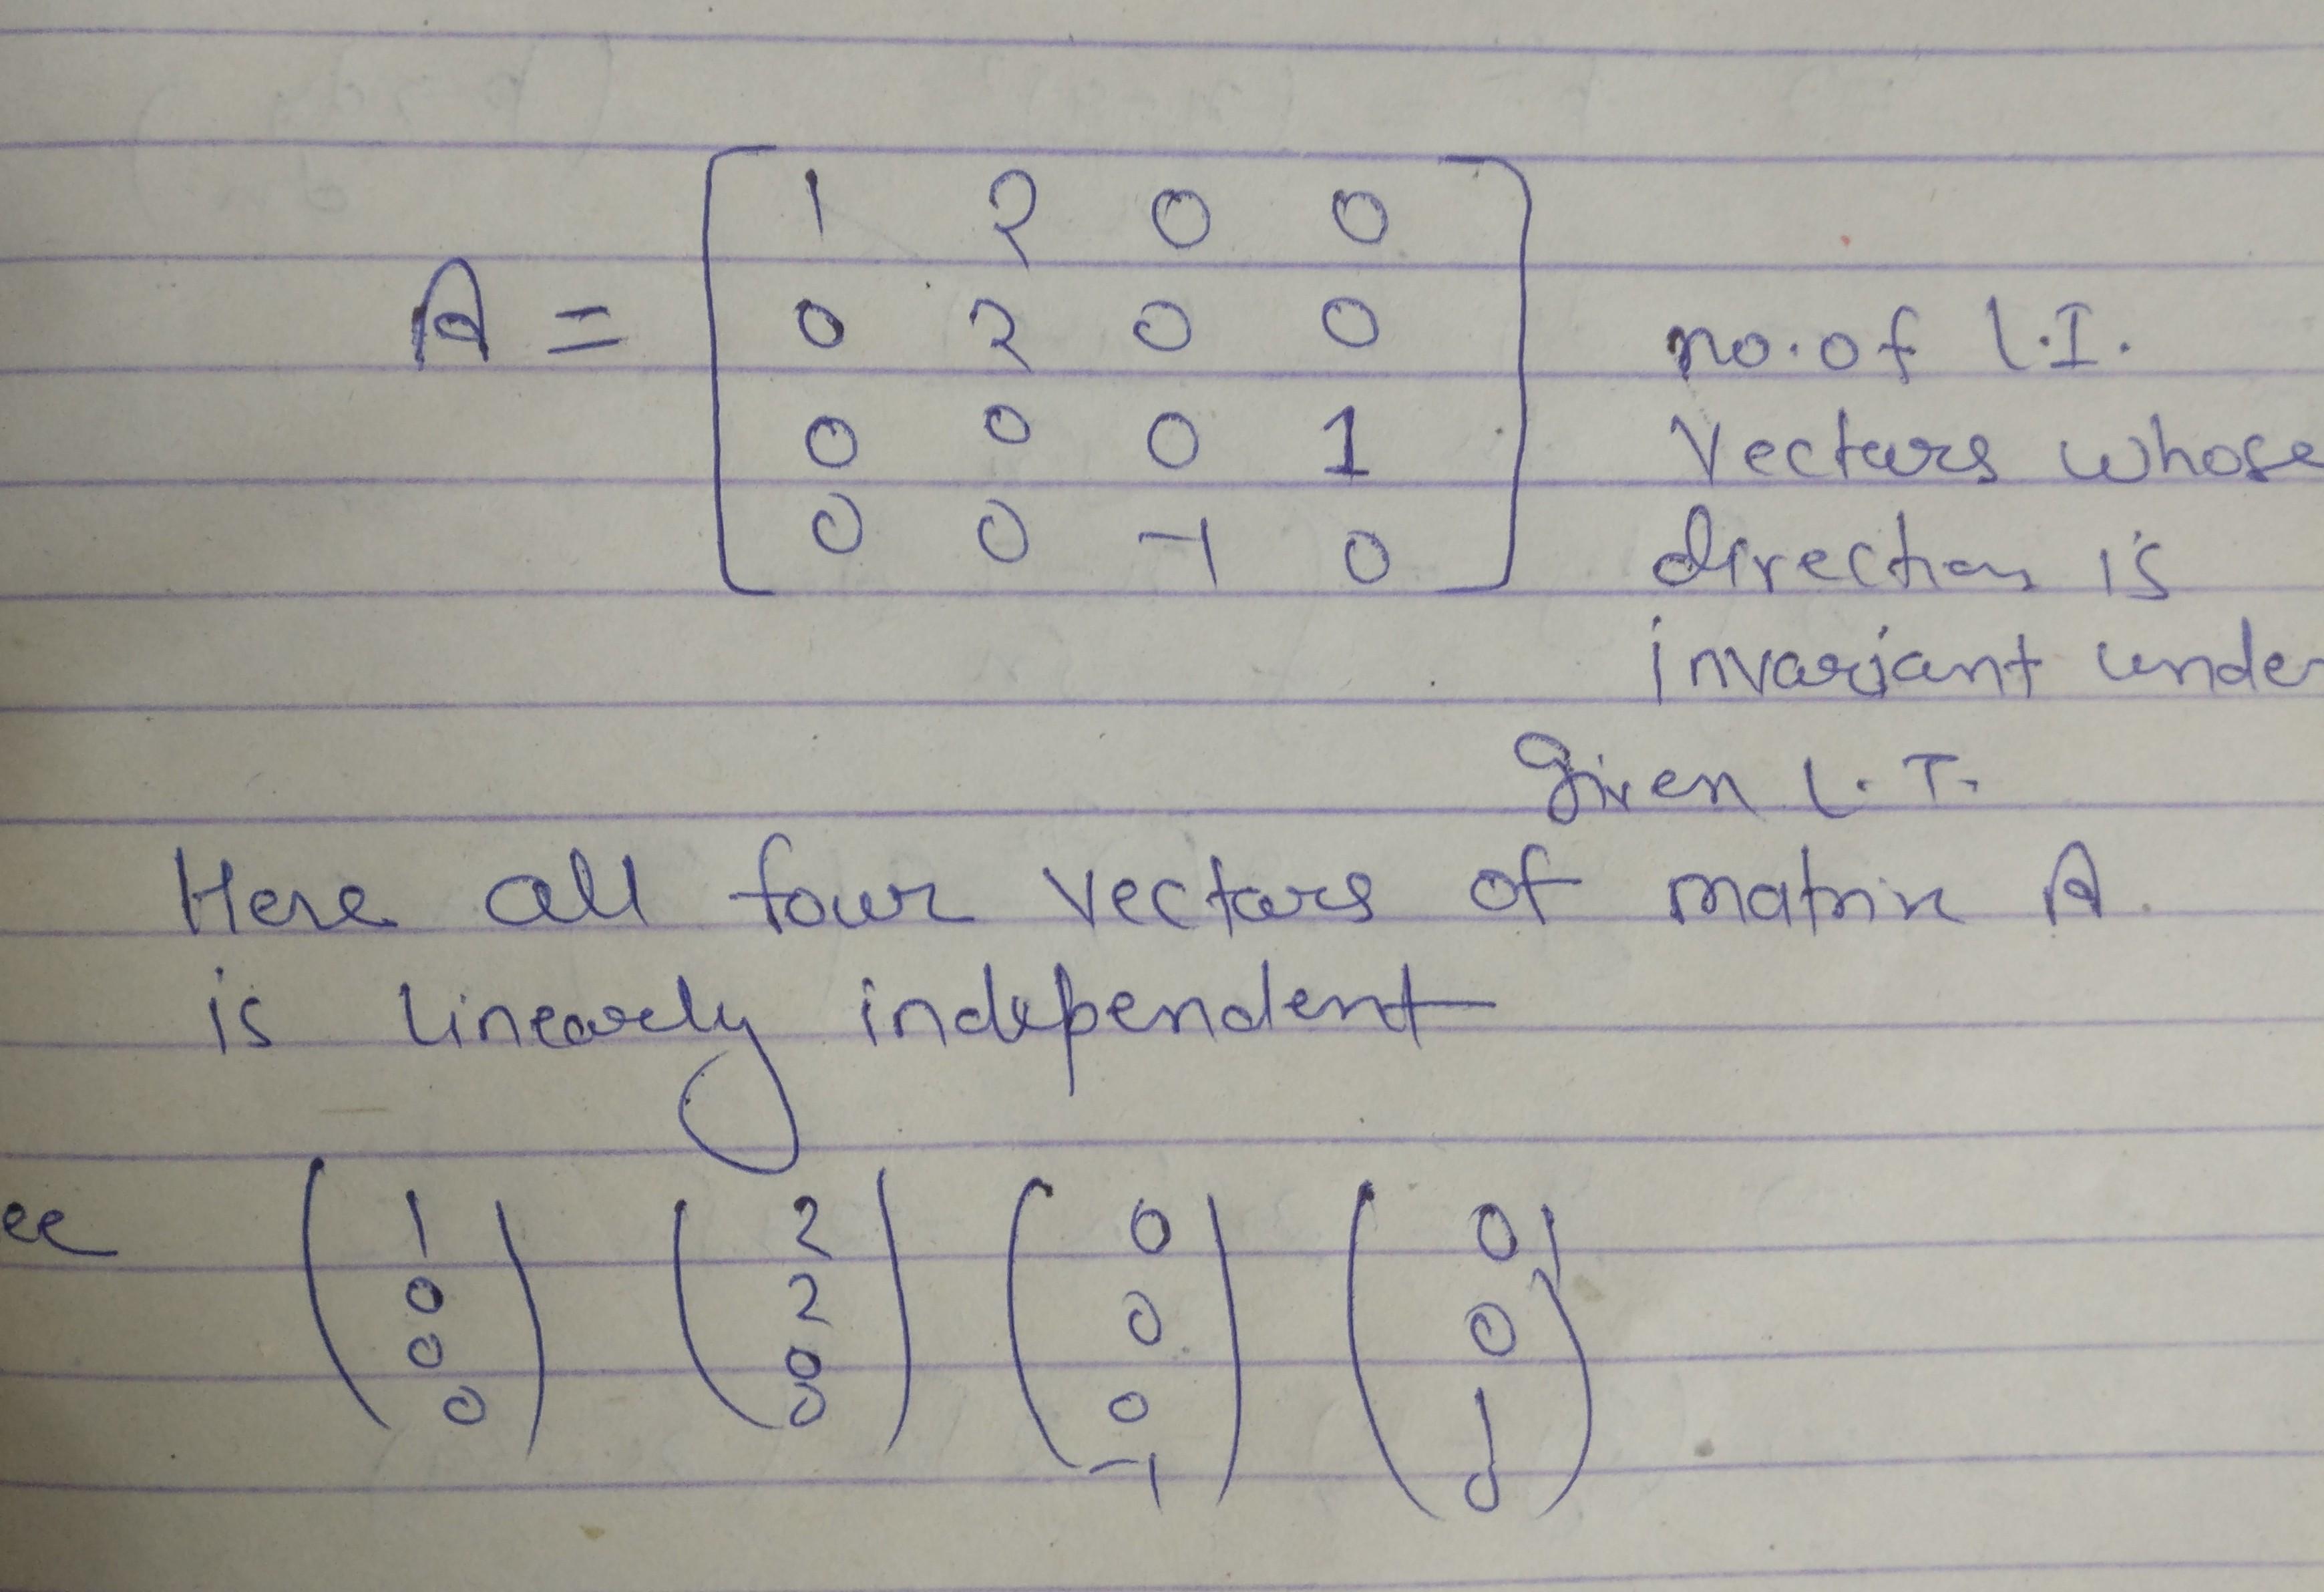 A = [ 1 2 0 0
0 2 0 0
0 0 0 1
0 0 -1 0 ]
no. of l.I.
Vectors whose
direction is
invariant under
given l. T.
Here all four vectors of matrix A.
is linearly independent
ee ( 1 0 0 0 ) ( 2 2 0 0 ) ( 0 0 0 -1 ) ( 0 0 1 0 )